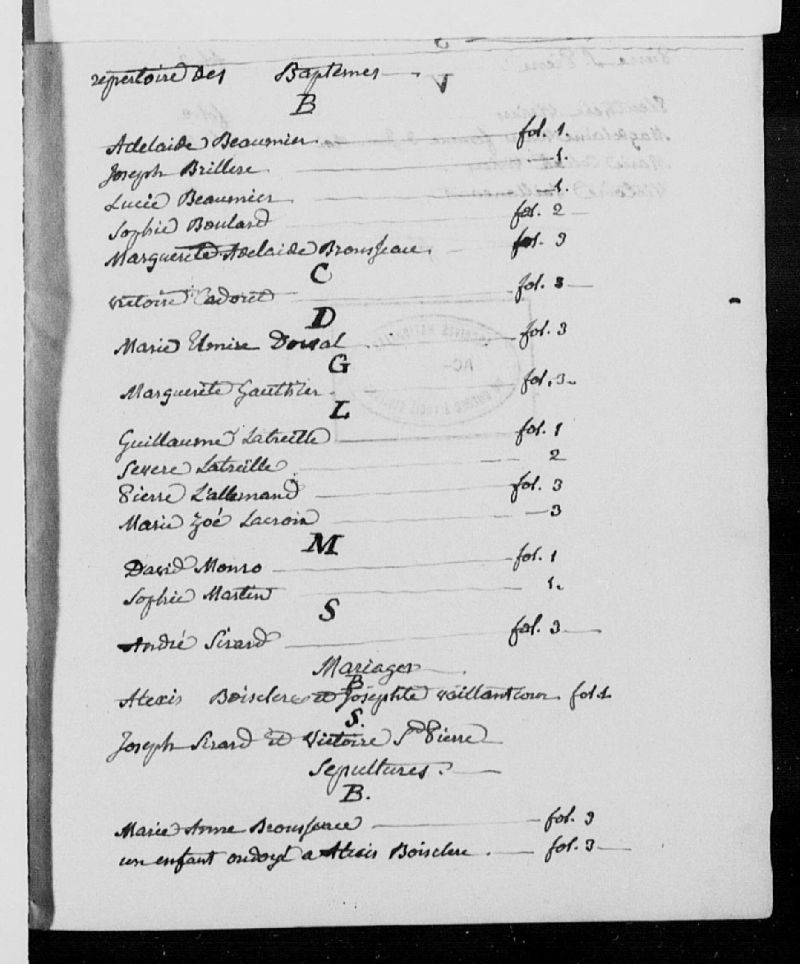 repertoire des Baptemes
B
Adelaide Beaumier. fol. 1.
Joseph Brillere 1.
Lucie Beaumier 1.
Sophie Boulard fol. 2
Marguerite Adelaide Brousseau. fol. 3
C
victoire Cadoret fol. 3
D
Marie Elmire Dorval fol. 3
G
Marguerite Gauthier. fol. 3.
L
Guillaume Latreille fol. 1
Severe Latreille 2
Pierre L'allemand fol. 3
Marie Zoé Lacroix 3
M
David Monro fol. 1
Sophie Martin 1.
S
André Sirard fol. 3
Mariages
B
Alexis Boisclere et Josephte vaillancour fol 1
S.
Joseph Sirard et Victoire St Pierre
Sepultures.
B.
Marie Anne Brousseau fol. 3
un enfant ondoyé a Alexis Boisclere. fol. 3